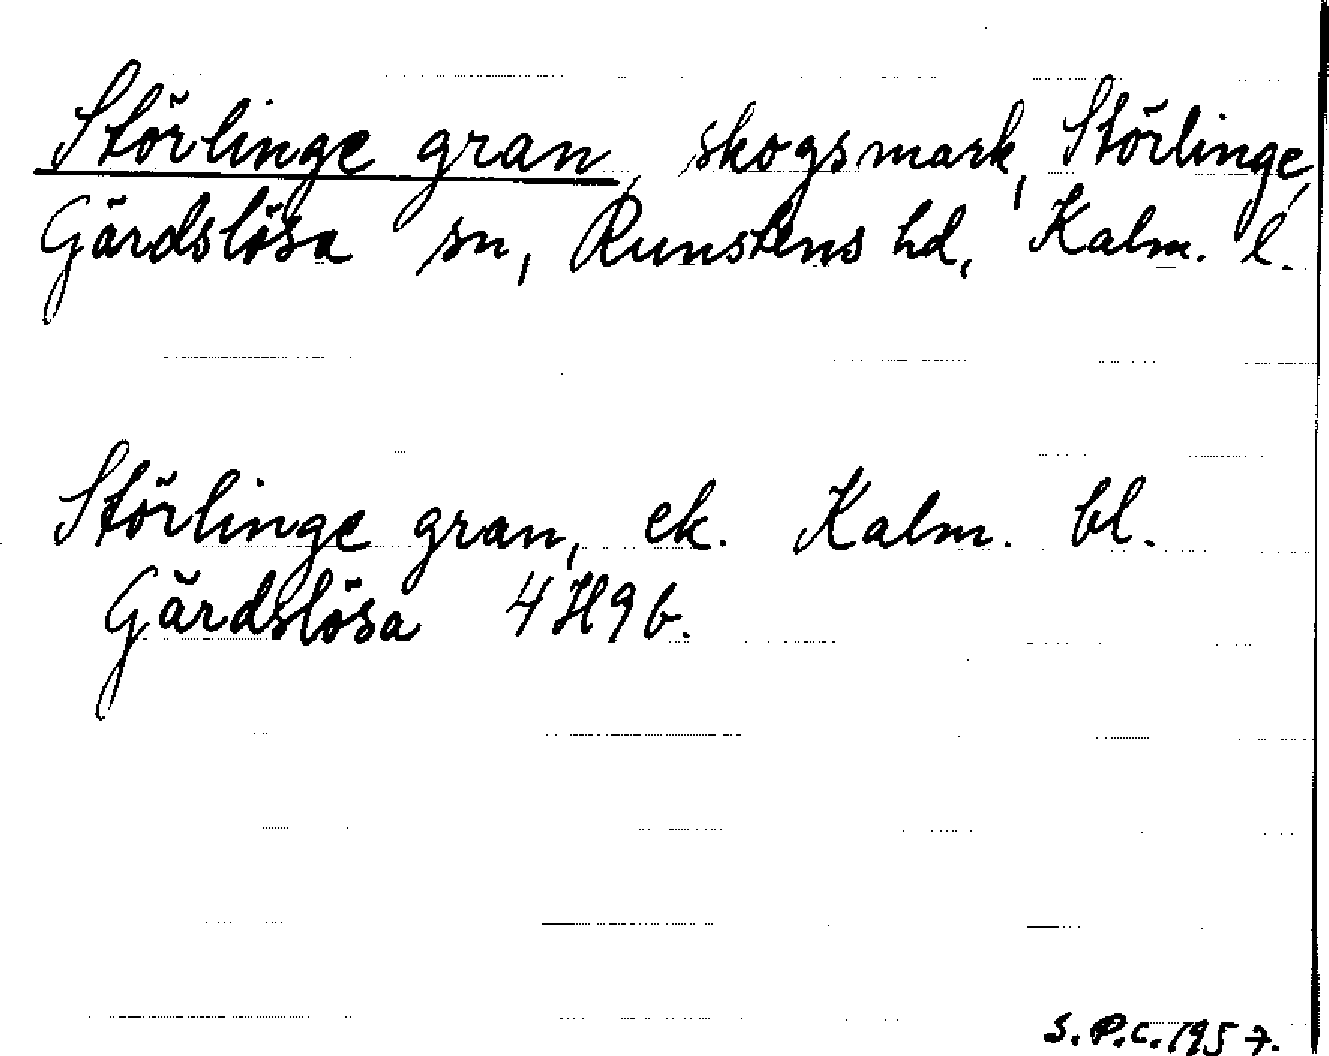 Störlinge gran, skogsmark, Störlinge,
Gärdslösa sn, Runstens hd, Kalm. l.
Störlinge gran, ek. Kalm. bl.
Gärdslösa 4H9b.
S.P.C. 1957.